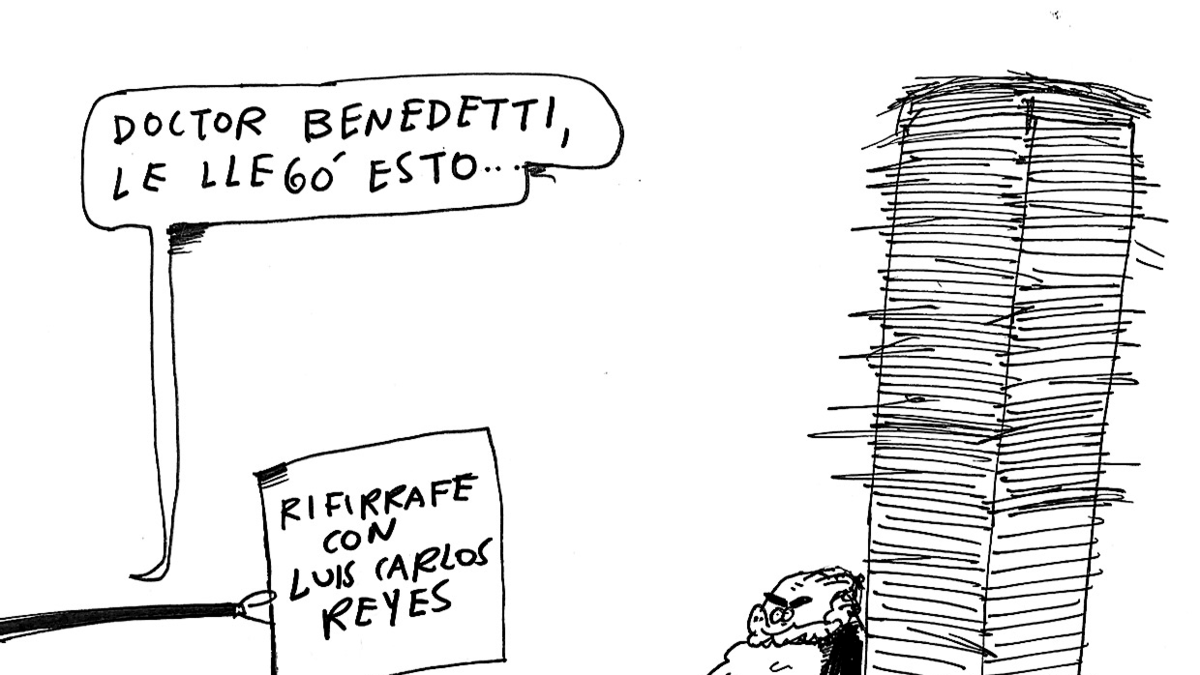 DOCTOR BENEDETTI,
LE LLEGÓ ESTO...
RIFIRRAFE
CON
LUIS CARLOS
REYES